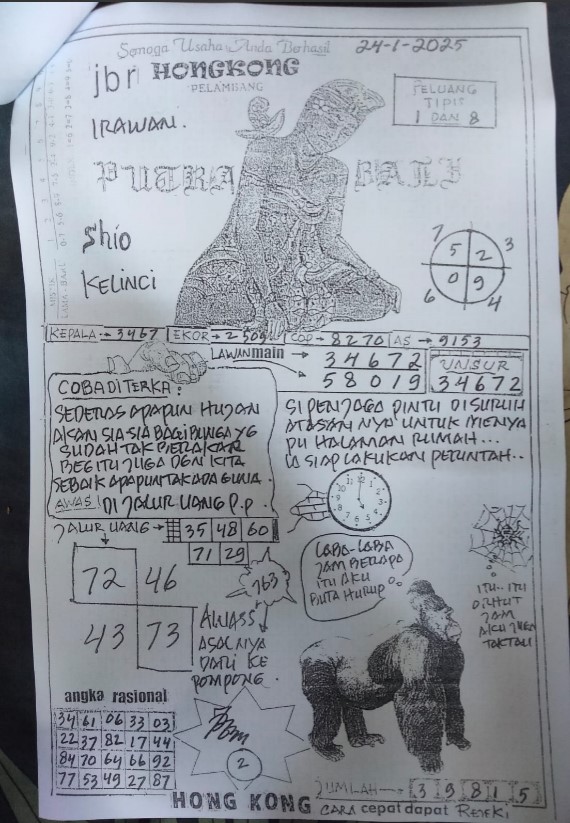 Semoga Usaha Anda Berhasil
24-1-2025
jbr HONGKONG
PELAMBANG
PELUANG
TIPIS
1 DAN 8
IRAWAN.
PUTRA BALI
Shio
KELINCI
7 3
5 2
0 9
6 4
KEPALA → 3467 EKOR → 2509 COP → 8270 AS → 9153
LAWAN main → 34672
58019
UNSUR
34672
COBA DI TERKA :
SEDERAS APAPUN HUJAN
AKAN SIA SIA BAGI BUNGA YG
SUDAH TAK MERAKAR
BEGITU JUGA DGN KITA
SEBAIK APAPUN TAK ADA GUNA.
AWAS! DI JALUR UANG P.P
SI PENJAGA PINTU DISURUH
ATASAN NYA UNTUK MENYA
PU HALAMAN RUMAH...
IA SIAP LAKUKAN PERINTAH..
JALUR UANG → 35 48 60
71 29
72 46
43 73
763
AWASS
ASALNYA
DARI KE
POMPONG.
LABA-LABA
JAM BERAPA
ITU AKU
BUTA HURUP
ITU.. ITU
JAM
angka rasional
34 61 06 33 03
22 37 82 17 44
84 70 64 66 92
77 53 49 27 87
2
JUMLAH → 3 9 8 1 5
HONG KONG CARA cepat dapat REJEKI